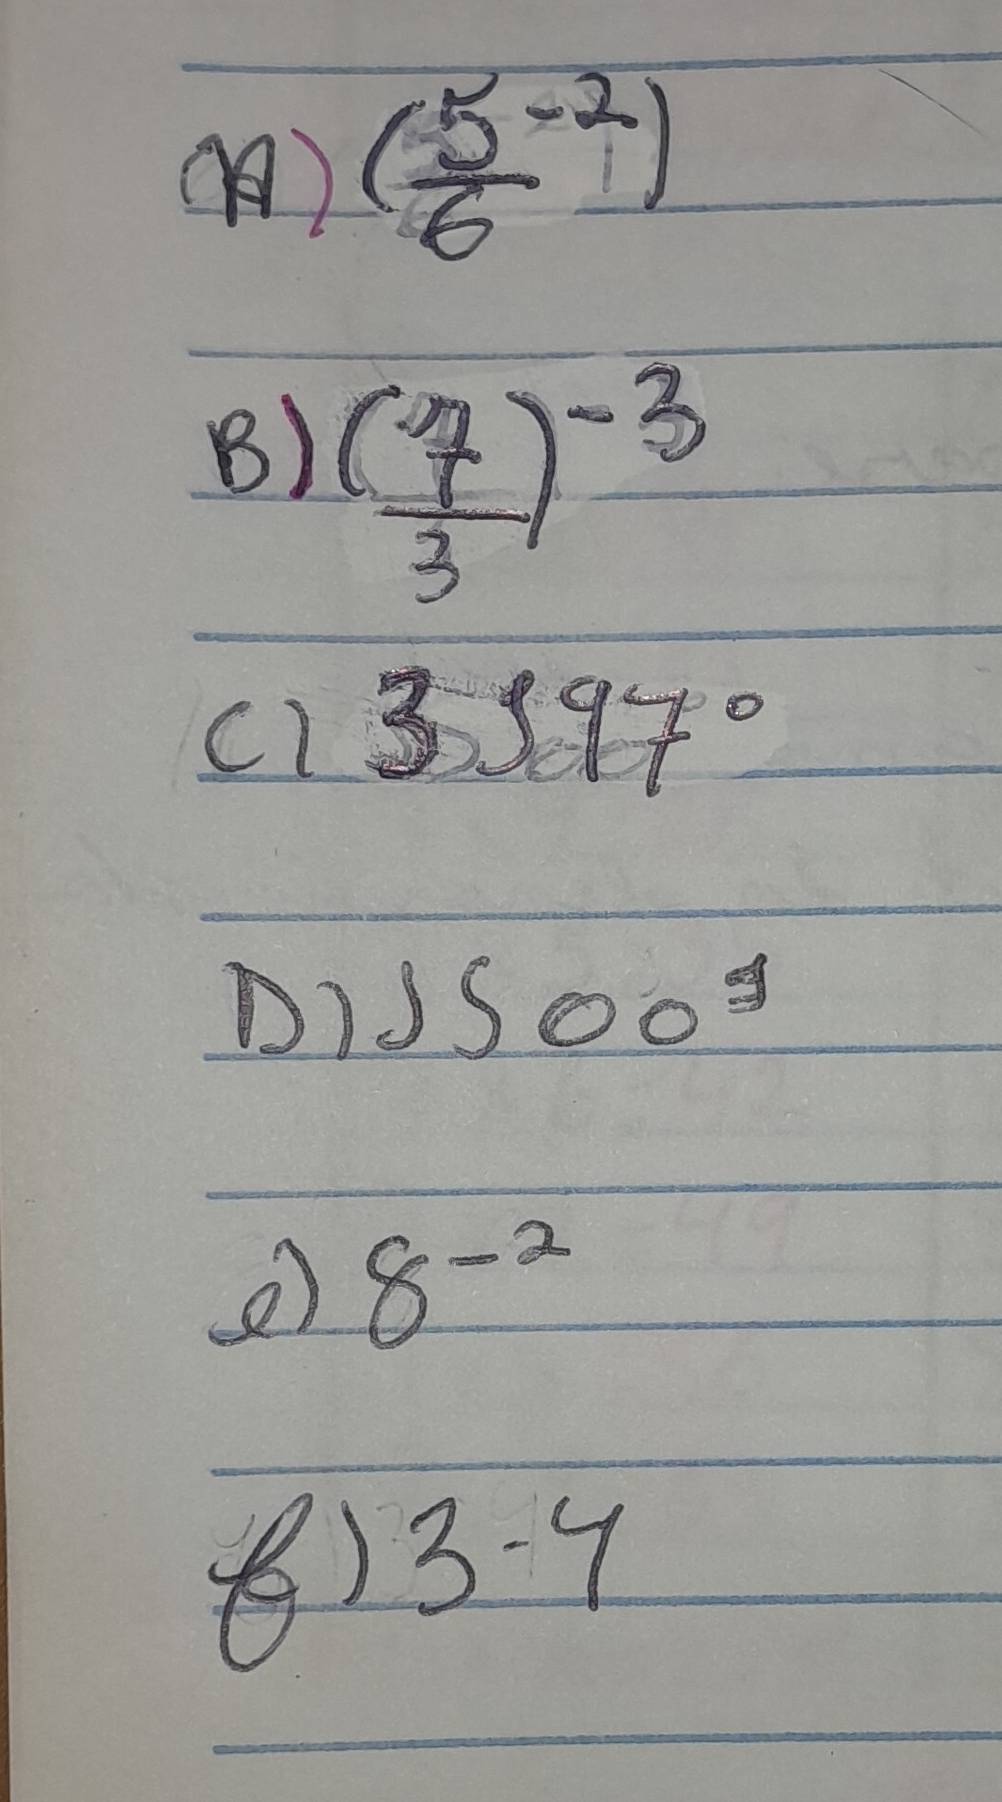 A) (5/6 ⁻²)
B) (7/3)⁻³
C) 3597⁰
D) 1500¹
e) 8⁻²
f) 3-4